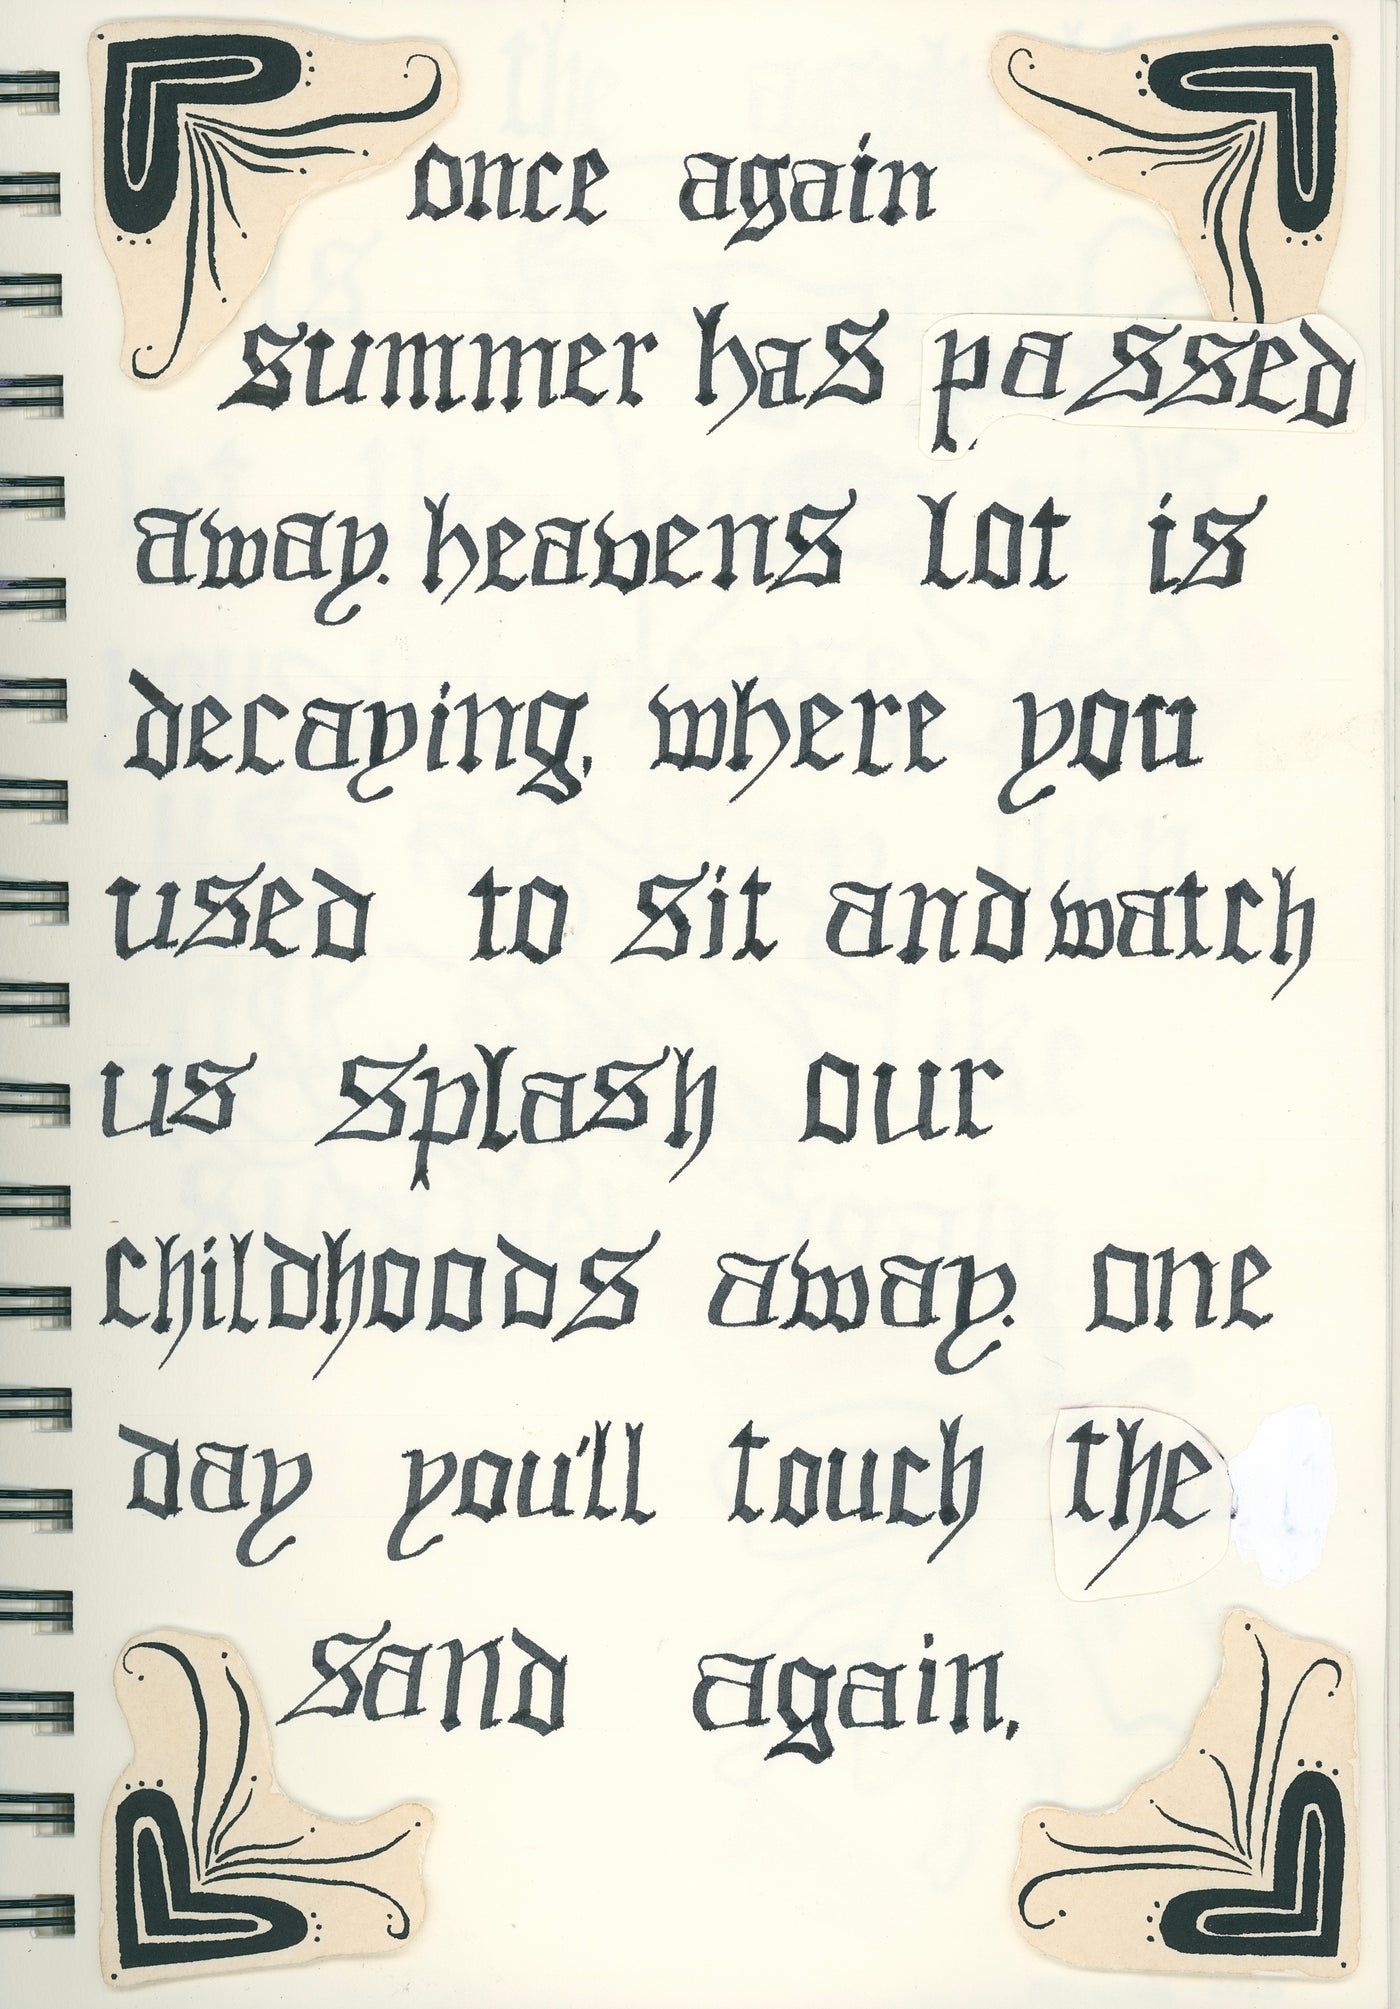 once again
summer has passed
away. heavens lot is
decaying, where you
used to sit and watch
us splash our
childhoods away. one
day you'll touch the
sand again.